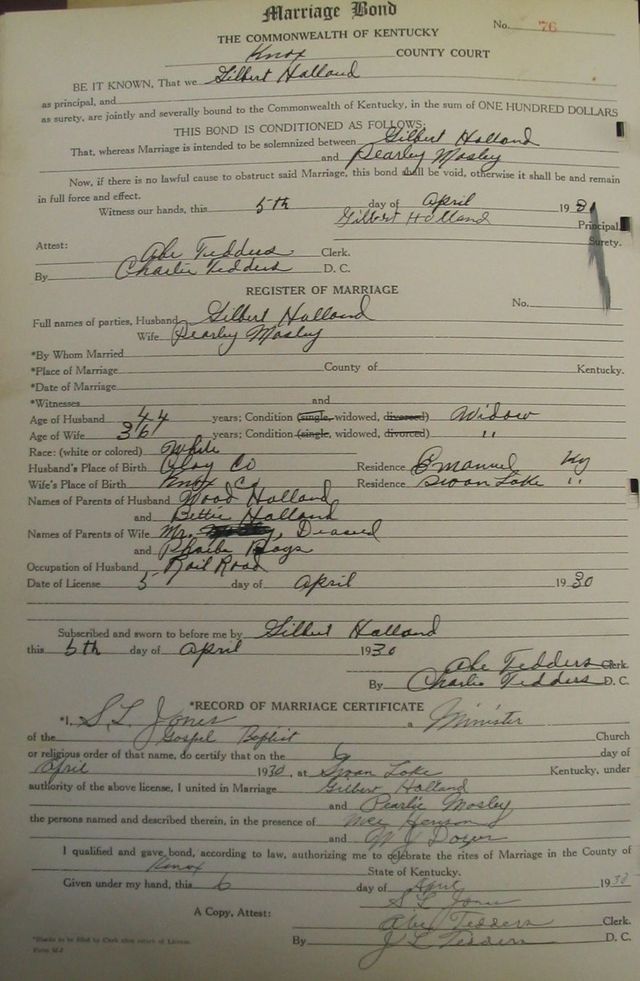 Marriage Bond
No. 76
THE COMMONWEALTH OF KENTUCKY
Knox COUNTY COURT
BE IT KNOWN, That we Gilbert Holland
as principal, and
as surety, are jointly and severally bound to the Commonwealth of Kentucky, in the sum of ONE HUNDRED DOLLARS
THIS BOND IS CONDITIONED AS FOLLOWS:
That, whereas Marriage is intended to be solemnized between Gilbert Holland
and Pearley Mosley
Now, if there is no lawful cause to obstruct said Marriage, this bond shall be void, otherwise it shall be and remain
in full force and effect.
Witness our hands, this 5th day of April 1930
Gilbert Holland Principal.
Surety.
Attest: Abe Tedders Clerk.
By Charlie Tedders D. C.
REGISTER OF MARRIAGE
No.
Full names of parties, Husband Gilbert Holland
Wife Pearley Mosley
*By Whom Married
*Place of Marriage County of Kentucky.
*Date of Marriage
*Witnesses and
Age of Husband 44 years; Condition (single, widowed, divorced) Widow
Age of Wife 36 years; Condition (single, widowed, divorced) "
Race: (white or colored) White
Husband's Place of Birth Clay Co Residence Emanuel Ky
Wife's Place of Birth Knox Co Residence Swan Lake "
Names of Parents of Husband Wood Holland
and Bettie Holland
Names of Parents of Wife Mr. Deased
and Phoeba Bays
Occupation of Husband Rail Road
Date of License 5 day of April 1930
Subscribed and sworn to before me by Gilbert Holland
this 5th day of April 1930
Abe Tedders Clerk.
By Charlie Tedders D. C.
*RECORD OF MARRIAGE CERTIFICATE
*I, S. L. Jones a Minister
of the Gospel Baptist Church
or religious order of that name, do certify that on the 6 day of
April 1930, at Swan Lake Kentucky, under
authority of the above license, I united in Marriage Gilbert Holland
and Pearlie Mosley
the persons named and described therein, in the presence of Henson
and W J
I qualified and gave bond, according to law, authorizing me to celebrate the rites of Marriage in the County of
Knox State of Kentucky.
Given under my hand, this 6 day of April 1930
S L Jones
A Copy, Attest: Abe Tedders Clerk.
By J L Tedders D. C.